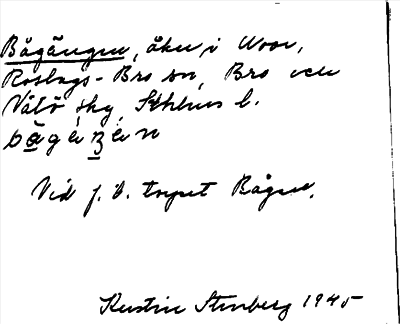 Bågängen, åker i Norr,
Roslags-Bro sn, Bro och
Vätö skg, Sthlms l.
bågeŋen
Vid f. d. torpet Bågen.
Kerstin Stenberg 1945